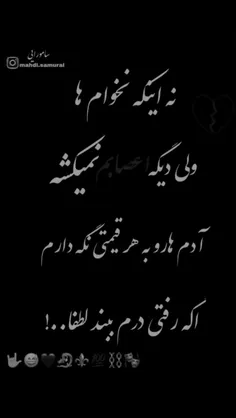 سامورایی
mahdi.samurai
نه اینکه نخوام ها
ولی دیگه اعصابم نمیکشه
آدم هارو به هر قیمتی نگه دارم
اگه رفتی درم ببند لطفا..!